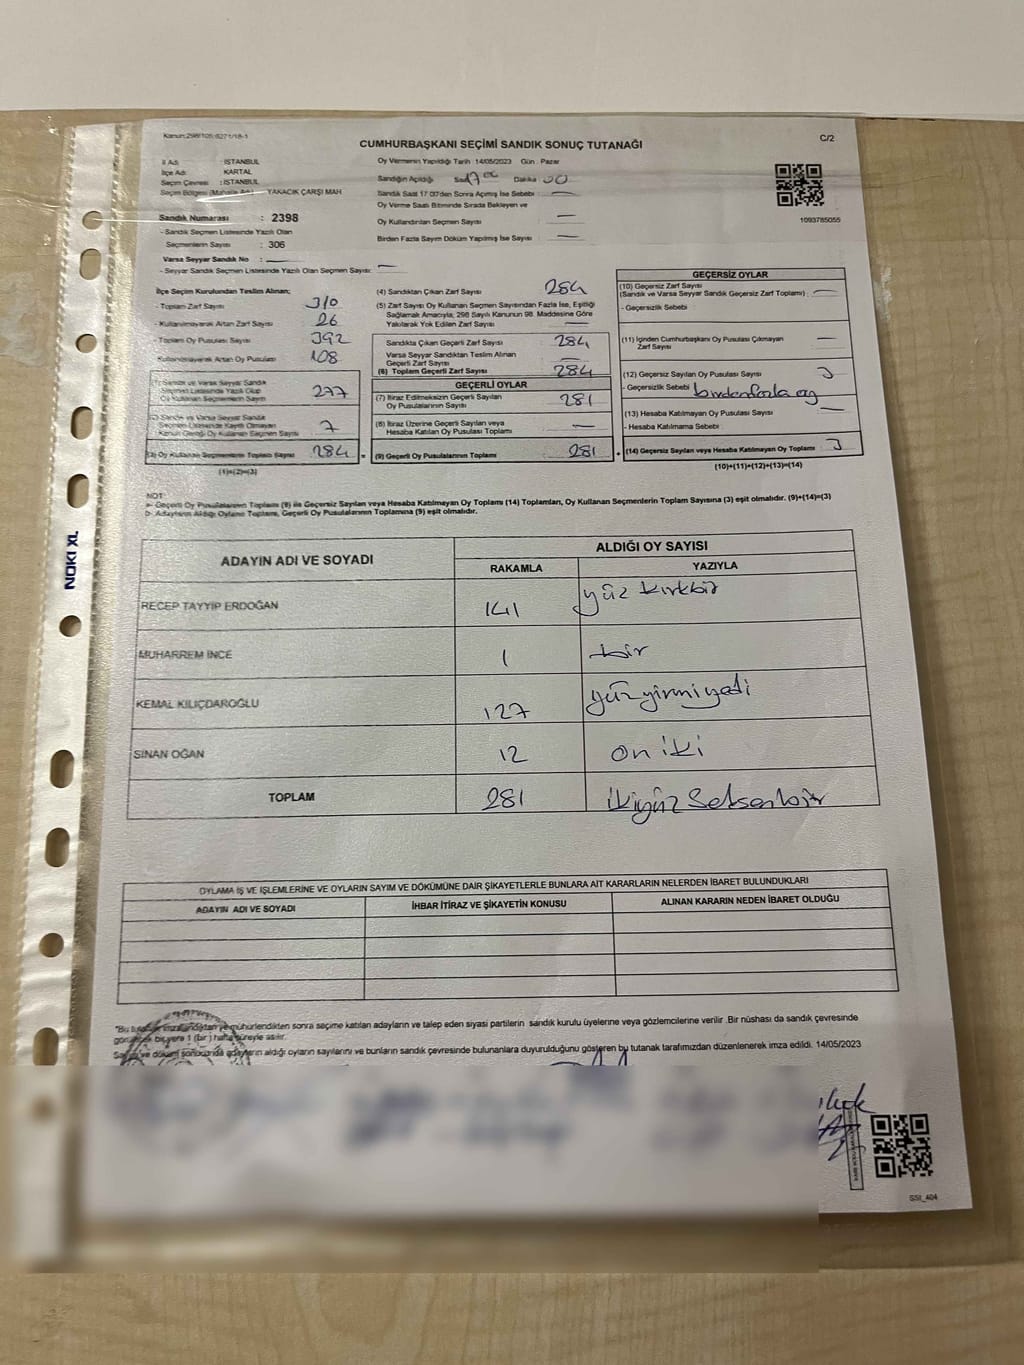 Kanun:298/105;6271/18-1
C/2
CUMHURBAŞKANI SEÇİMİ SANDIK SONUÇ TUTANAĞI
İl Adı : İSTANBUL
İlçe Adı : KARTAL
Seçim Çevresi : İSTANBUL
Seçim Bölgesi (Mahalle Adı) : YAKACIK ÇARŞI MAH
Sandık Numarası : 2398
- Sandık Seçmen Listesinde Yazılı Olan
Seçmenlerin Sayısı : 306
Varsa Seyyar Sandık No : —
- Seyyar Sandık Seçmen Listesinde Yazılı Olan Seçmen Sayısı: —
Oy Vermenin Yapıldığı Tarih 14/05/2023 Gün : Pazar
Sandığın Açıldığı Saat 17 00 Dakika 00
Sandık Saat 17.00'den Sonra Açımış İse Sebebi : —
Oy Verme Saati Bitiminde Sırada Bekleyen ve
Oy Kullandırılan Seçmen Sayısı : —
Birden Fazla Sayım Döküm Yapılmış İse Sayısı : —
1093785055
İlçe Seçim Kurulundan Teslim Alınan;
- Toplam Zarf Sayısı : 310
- Kullanılmayarak Artan Zarf Sayısı : 26
- Toplam Oy Pusulası Sayısı : 392
Kullanılmayarak Artan Oy Pusulası : 108
(1) Sandık ve Varsa Seyyar Sandık
Seçmen Listesinde Yazılı Olup
Oy Kullanan Seçmenlerin Sayısı : 277
(2) Sandık ve Varsa Seyyar Sandık
Seçmen Listesinde Kayıtlı Olmayan
Kanun Gereği Oy Kullanan Seçmen Sayısı : 7
(3) Oy Kullanan Seçmenlerin Toplam Sayısı : 284
(1)+(2)=(3)
(4) Sandıktan Çıkan Zarf Sayısı : 284
(5) Zarf Sayısı Oy Kullanan Seçmen Sayısından Fazla İse, Eşitliği
Sağlamak Amacıyla, 298 Sayılı Kanunun 98. Maddesine Göre
Yakılarak Yok Edilen Zarf Sayısı : —
Sandıkta Çıkan Geçerli Zarf Sayısı : 284
Varsa Seyyar Sandıktan Teslim Alınan
Geçerli Zarf Sayısı : —
(6) Toplam Geçerli Zarf Sayısı : 284
GEÇERLİ OYLAR
(7) İtiraz Edilmeksizin Geçerli Sayılan
Oy Pusulalarının Sayısı : 281
(8) İtiraz Üzerine Geçerli Sayılan veya
Hesaba Katılan Oy Pusulası Toplamı : —
(9) Geçerli Oy Pusulalarının Toplamı : 281
GEÇERSİZ OYLAR
(10) Geçersiz Zarf Sayısı
(Sandık ve Varsa Seyyar Sandık Geçersiz Zarf Toplamı) : —
- Geçersizlik Sebebi :
(11) İçinden Cumhurbaşkanı Oy Pusulası Çıkmayan
Zarf Sayısı : —
(12) Geçersiz Sayılan Oy Pusulası Sayısı : 3
- Geçersizlik Sebebi : birden fazla oy
(13) Hesaba Katılmayan Oy Pusulası Sayısı : —
- Hesaba Katılmama Sebebi :
(14) Geçersiz Sayılan veya Hesaba Katılmayan Oy Toplamı : 3
(10)+(11)+(12)+(13)=(14)
NOT:
Geçerli Oy Pusulalarının Toplamı (9) ile Geçersiz Sayılan veya Hesaba Katılmayan Oy Toplamı (14) Toplamları, Oy Kullanan Seçmenlerin Toplam Sayısına (3) eşit olmalıdır. (9)+(14)=(3)
Adayların Aldığı Oyların Toplamı, Geçerli Oy Pusulalarının Toplamına (9) eşit olmalıdır.
ADAYIN ADI VE SOYADI
ALDIĞI OY SAYISI
RAKAMLA YAZIYLA
RECEP TAYYİP ERDOĞAN 141 yüz kırkbir
MUHARREM İNCE 1 bir
KEMAL KILIÇDAROĞLU 127 yüzyirmiyedi
SİNAN OĞAN 12 on iki
TOPLAM 281 ikiyüz Seksenbir
OYLAMA İŞ VE İŞLEMLERİNE VE OYLARIN SAYIM VE DÖKÜMÜNE DAİR ŞİKAYETLERLE BUNLARA AİT KARARLARIN NELERDEN İBARET BULUNDUKLARI
ADAYIN ADI VE SOYADI İHBAR İTİRAZ VE ŞİKAYETİN KONUSU ALINAN KARARIN NEDEN İBARET OLDUĞU
*Bu tutanak imzalandıktan ve mühürlendikten sonra seçime katılan adayların ve talep eden siyasi partilerin sandık kurulu üyelerine veya gözlemcilerine verilir .Bir nüshası da sandık çevresinde
görülecek bir yere 1 (bir) hafta süreyle asılır.
Sayım ve döküm sonucunda adayların aldığı oyların sayılarını ve bunların sandık çevresinde bulunanlara duyurulduğunu gösteren bu tutanak tarafımızdan düzenlenerek imza edildi. 14/05/2023
SSI_404
NOKI XL